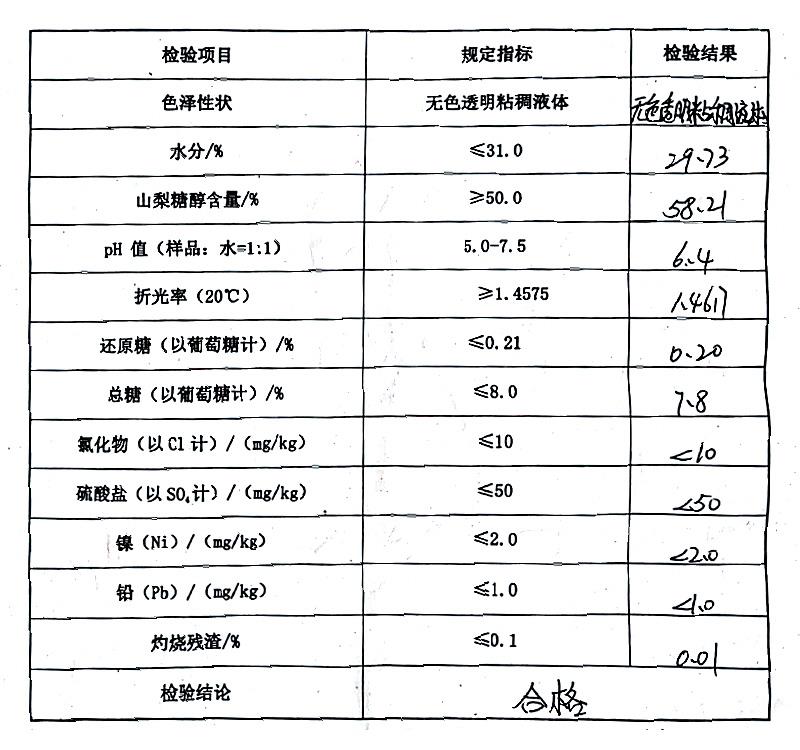 检验项目 规定指标 检验结果
色泽性状 无色透明粘稠液体 无色透明粘稠液体
水分/% ≤31.0 29.73
山梨糖醇含量/% ≥50.0 58.21
pH 值（样品：水=1:1） 5.0-7.5 6.4
折光率（20℃） ≥1.4575 1.4617
还原糖（以葡萄糖计）/% ≤0.21 0.20
总糖（以葡萄糖计）/% ≤8.0 7.8
氯化物（以 Cl 计）/（mg/kg） ≤10 <10
硫酸盐（以 SO₄计）/（mg/kg） ≤50 <50
镍（Ni）/（mg/kg） ≤2.0 <2.0
铅（Pb）/（mg/kg） ≤1.0 <1.0
灼烧残渣/% ≤0.1 0.01
检验结论 合格